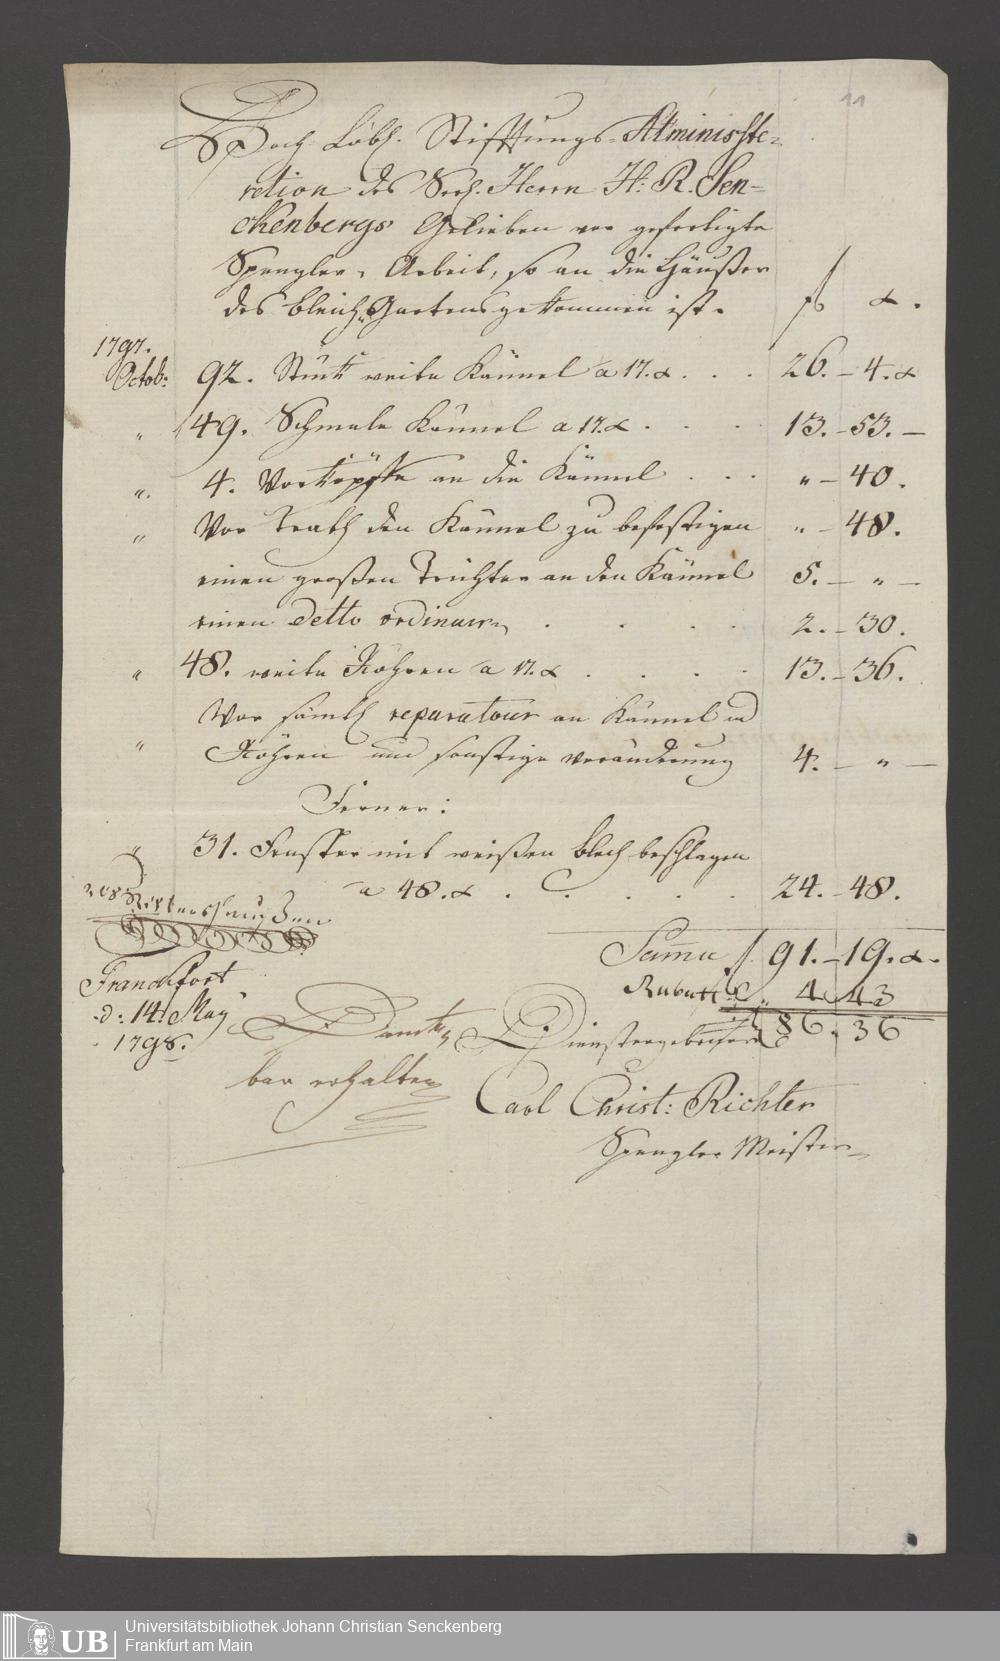 11
Hoch Löbl. Stifftungs-Atministe-
ration des Seel. Herrn H: R. Sen-
ckenbergs Gelieben vor gefertigte
Spengler, Arbeit, so an die Häußer
des bleich Gartens gekommen ist.
fl x.
1797.
Octob: 92. Stück weite Kännel a 17. x . . . 26. – 4. x
" 49. Schmale Kännel a 17. x . . . 13. – 53. –
" 4. Vorköpffe an die Kännel . . . " – 40.
" Vor Trath den Kännel zu befestigen " – 48.
einen großen Trichter an den Kännel 5. – " –
einen detto ordinair . . . 2. – 30.
" 48. weite Röhren a 17. x . . . . 13. – 36.
Vor sämtl reparatour an Kännel und
" Röhren und sonstige veränderung 4. – " –
Ferner:
" 31. Fenster mit weißen blech beschlagen
a 48. x . . . . . . 24. – 48.
Suma f 91. – 19. x.
Rabatt " 4. 43
f 86. 36
Franckfort
d: 14. May
1798.
Danck
bar erhalten
Dienstergebenster
Carl Christ: Richter
Spengler Meister
UB
Universitätsbibliothek Johann Christian Senckenberg
Frankfurt am Main